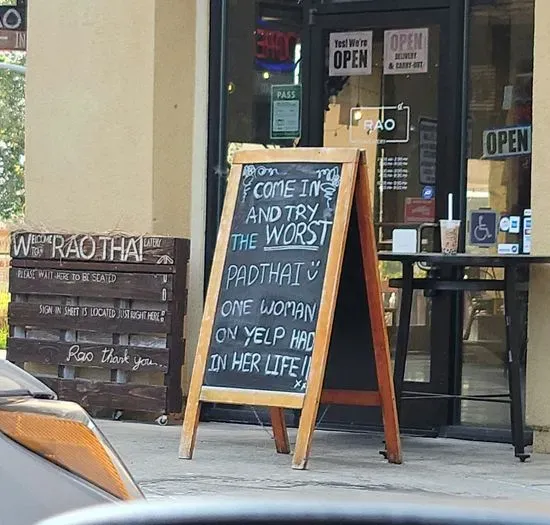 AO
Yes! We're
OPEN
OPEN
DELIVERY
& CARRY-OUT
PASS
RAO
OPEN
WELCOME TO RAO THAI EATERY
PLEASE WAIT HERE TO BE SEATED
SIGN IN SHEET IS LOCATED JUST RIGHT HERE
Rao thank you
COME IN
AND TRY
THE WORST
PADTHAI
ONE WOMAN
ON YELP HAD
IN HER LIFE!!